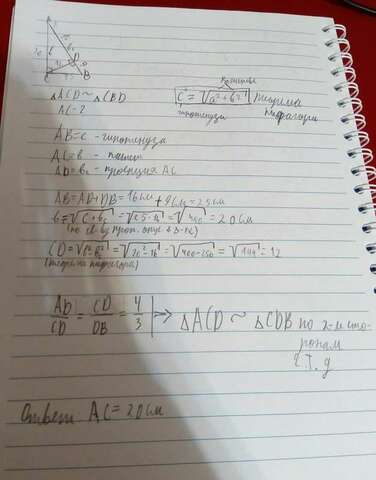 △ACD ~ △CBD
AC=?
катеты
C = √a²+b²
Теорема
гипотенуза
Пифагора
AB=c - гипотенуза
AC=b - катет
AD=bc - проекция AC
AB=AD+DB=16см+9см=25см
b=√c·bc=√25·16=√400=20см
CD=√b²-bc²=√20²-16²=√400-256=√144=12
(теорема пифагора)
AD/CD = CD/DB = 4/3 | => △ACD ~ △CDB по 2-м сто-
ронам
ч.т.д
Ответ AC=20см